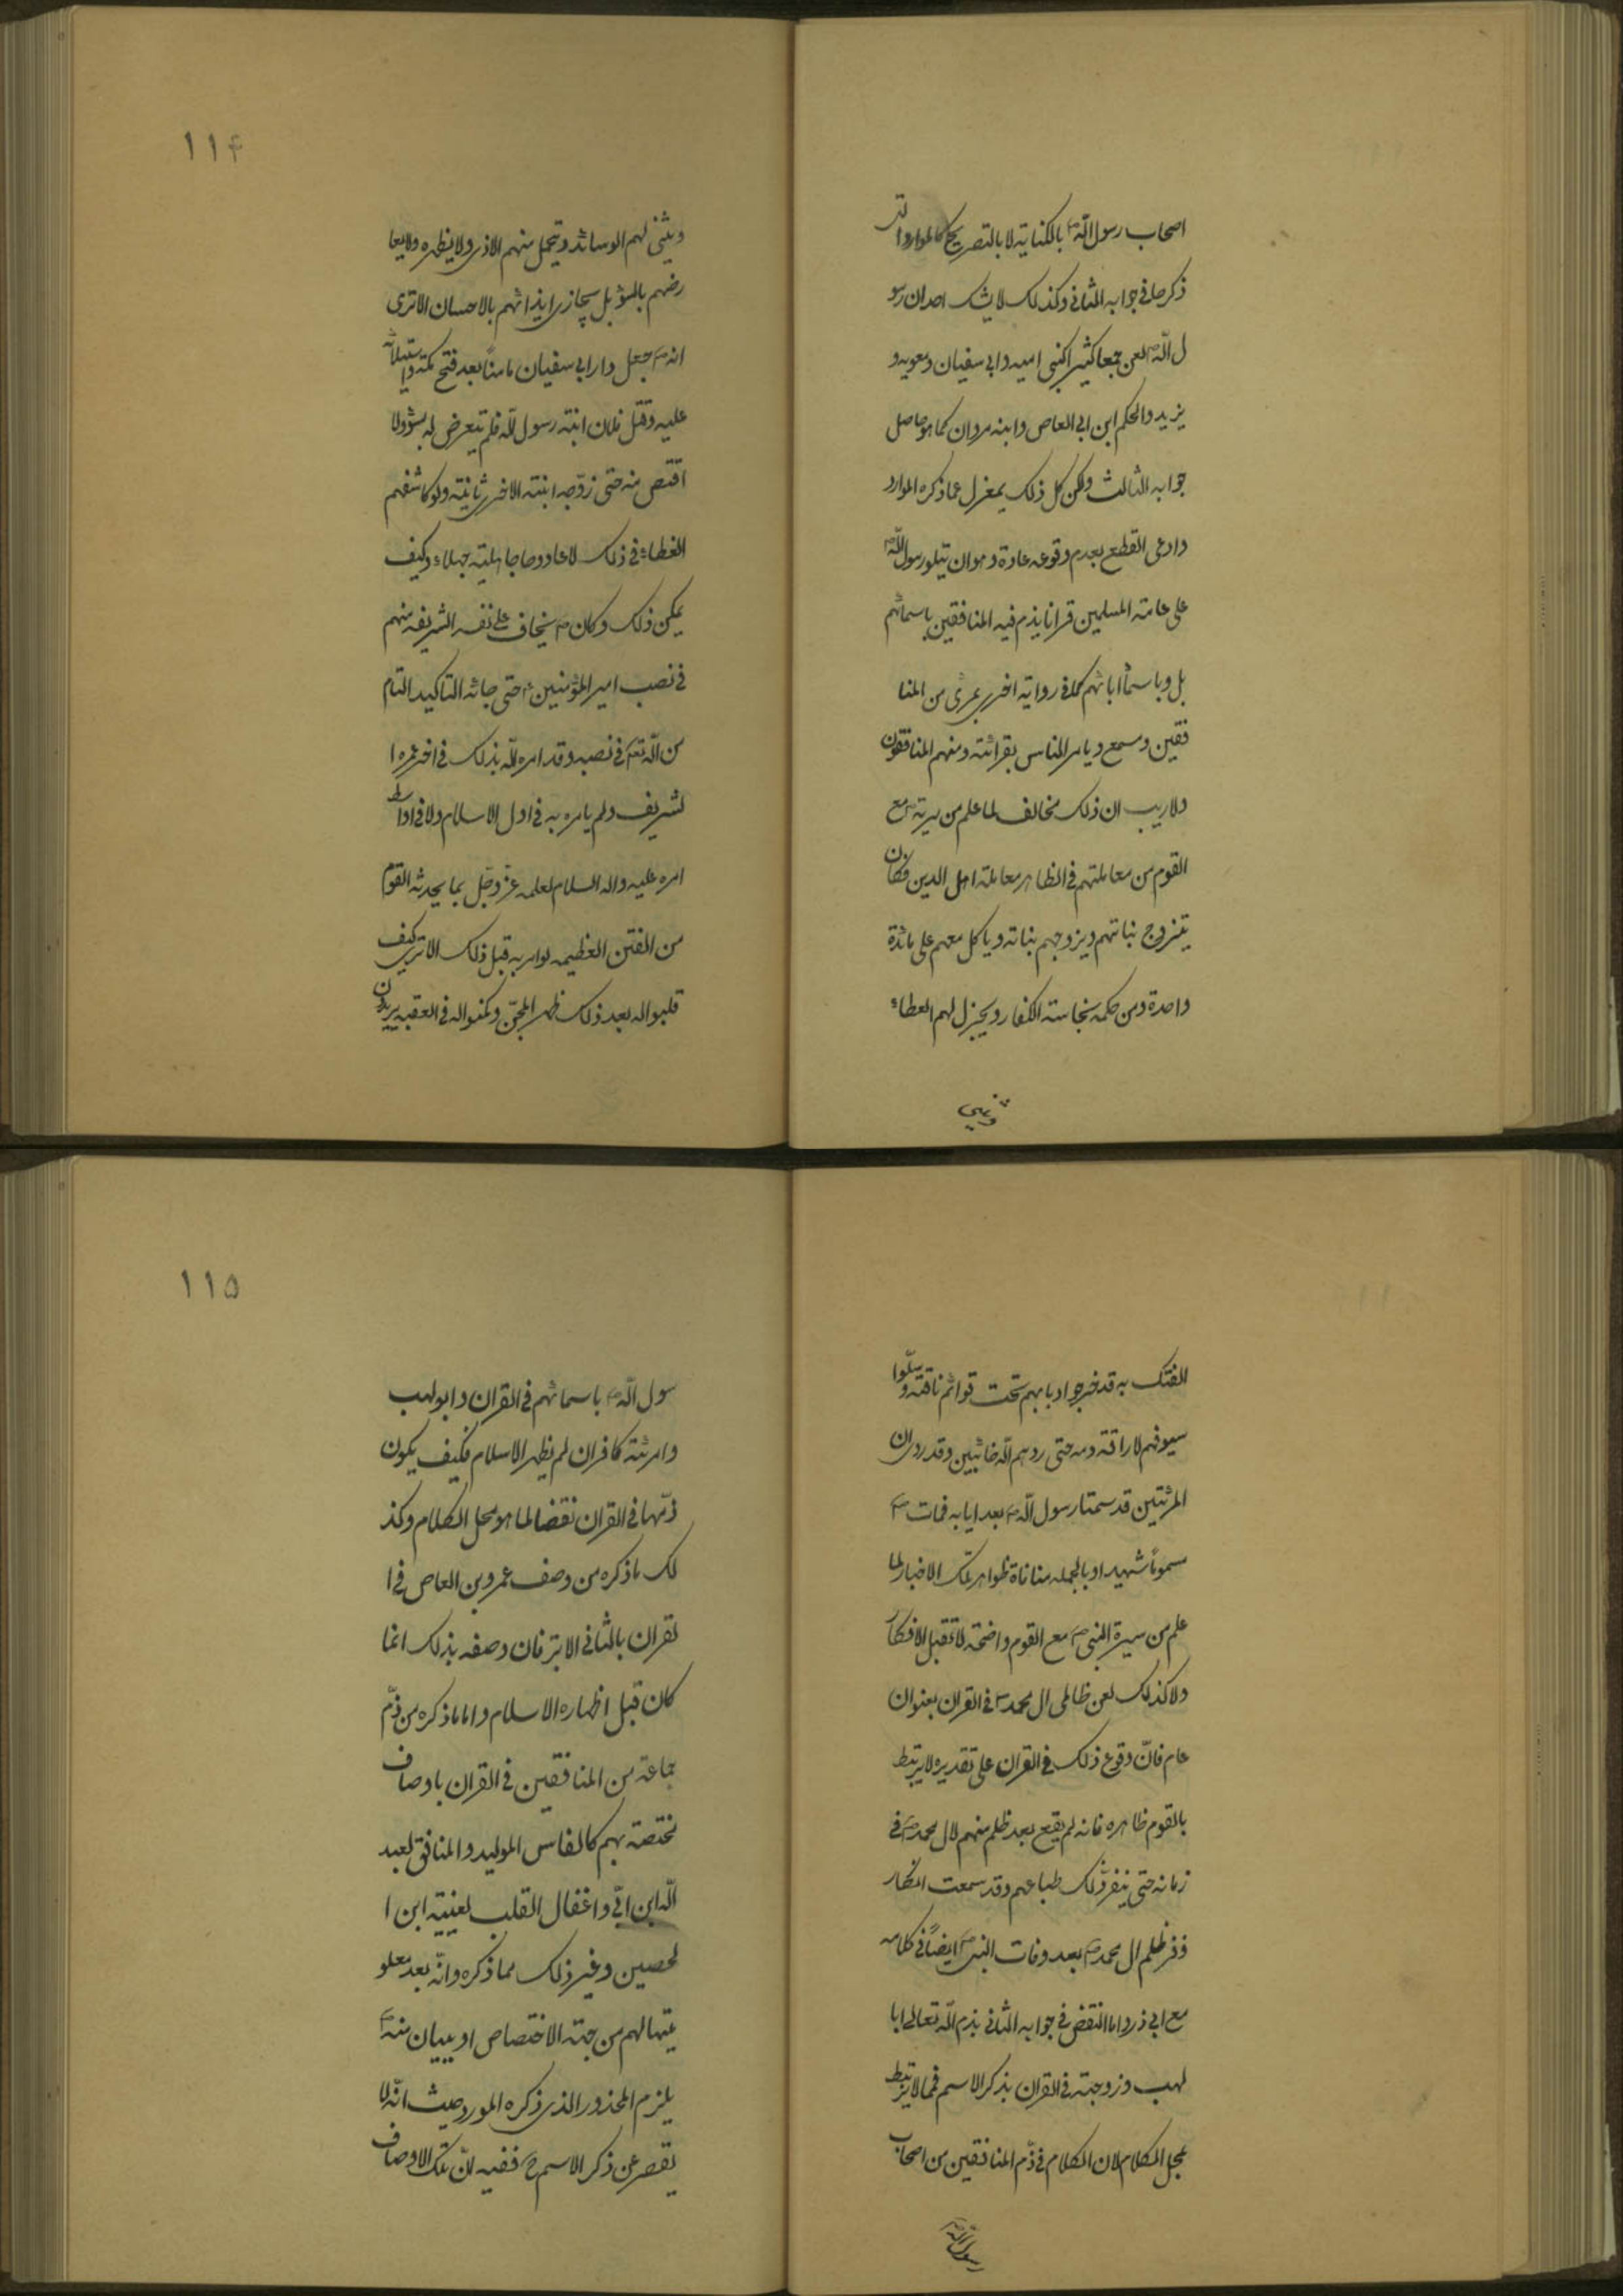 اصحاب رسول اللّه ص بالكناية لا بالتصريح كالموارد التى
ذكرها فى جوابه الثانى وكذلك لا يشك احد ان رسو
ل اللّه ص لعن جمعا كثيرا كبنى اميه وابى سفيان ومعويه و
يزيد والحكم ابن ابى العاص وابنه مروان كما هو حاصل
جوابه الثالث ولكن كل ذلك بمعزل عما ذكره المورد
وادعى القطع بعدم وقوعه عادة وهو ان يتلو رسول اللّه ص
على عامة المسلمين قرانا يذم فيه المنافقين باسمائهم
بل وباسماء ابائهم كما فى رواية اخرى بمرئ من المنا
فقين ومسمع ويامر الناس بقرائته ومنهم المنافقون
ولا ريب ان ذلك مخالف لما علم من سيرته ص مع
القوم من معاملتهم فى الظاهر معاملة اهل الدين فكان
يتزوج بناتهم ويزوجهم بناته وياكل معهم على مائدة
واحدة ومن حكمه بنجاسة الكفار ويجزل لهم العطاء
ويثنى
١١۴
ويثنى لهم الوسائد ويتحمل منهم الاذى ولا يظهره ولا يعا
رضهم بالسوء بل يجازى ايذائهم بالاحسان الا ترى
انه ص جعل دار ابى سفيان مامنًا بعد فتح مكة واستيلائه
عليه وقتل فلان ابنة رسول اللّه فلم يتعرض له بسوء ولا
اقتص منه حتى زوّجه ابنته الاخرى ثانية ولو كاشفهم
الغطاء فى ذلك لاعادوها جاهلية جهلاء وكيف
يمكن ذلك وكان ص يخاف على نفسه الشريفه منهم
فى نصب امير المؤمنين ع حتى جائه التاكيد التام
من اللّه تعالى فى نصبه وقد امره اللّه بذلك فى اخر عمره ا
لشريف ولم يامره به فى اول الاسلام ولا فى اواسط
امره عليه واله السلام لعلمه عزّ وجلّ بما يحدثه القوم
من الفتن العظيمه لو امر به قبل ذلك الا ترى كيف
قلبوا له بعد ذلك ظهر المجنّ وكمنوا له فى العقبه يريدون
الفتك به قد دبابهم تحت قوائم ناقته وسلّوا
سيوفهم لاراقة دمه حتى ردهم اللّه خائبين وقد روى ان
المرئتين قد سمتا رسول اللّه ص بعد ايابه فمات ص
مسمومًا شهيدا وبالجمله منافاة ظواهر تلك الاخبار لما
علم من سيرة النبى ص مع القوم واضحة لا تقبل الانكار
ولا كذلك لعن ظالمى ال محمد ص فى القران بعنوان
عام فانّ وقوع ذلك فى القران على تقديره لا يرتبط
بالقوم ظاهره فانه لم يقع بعد ظلم منهم لال محمد ص فى
زمانه حتى ينفر ذلك طباعهم وقد سمعت انكار
ذفر ظلم ال محمد ص بعد وفات النبى ص ايضًا فى كلامه
مع ابى ذر واما النقض فى جوابه الثانى بذم اللّه تعالى ابا
لهب وزوجته فى القران بذكر الاسم فمما لا يرتبط
بمحل الكلام لان الكلام فى ذم المنافقين من اصحاب
رسول اللّه
١١۵
سول اللّه ص باسمائهم فى القران وابو لهب
وامرئته كافران لم يظهر الاسلام فكيف يكون
ذمّهما فى القران نقضا لما هو محل الكلام وكذ
لك ما ذكره من وصف عمرو بن العاص فى ا
لقران بالشانى الابتر فان وصفه بذلك انما
كان قبل اظهاره الاسلام واما ما ذكره من ذمّ
جماعة من المنافقين فى القران باوصاف
مختصة بهم كالفاسق الوليد والمنافق لعبد
اللّه ابن ابىّ واغفال القلب لعيينة ابن ا
لحصين وغير ذلك مما ذكره وانّه بعد معلو
ميتها لهم من جهة الاختصاص او ببيان منه ص
يلزم المحذور الذى ذكره المورد حيث انّه لا
يقصر عن ذكر الاسم ح ففيه انّ تلك الاوصاف